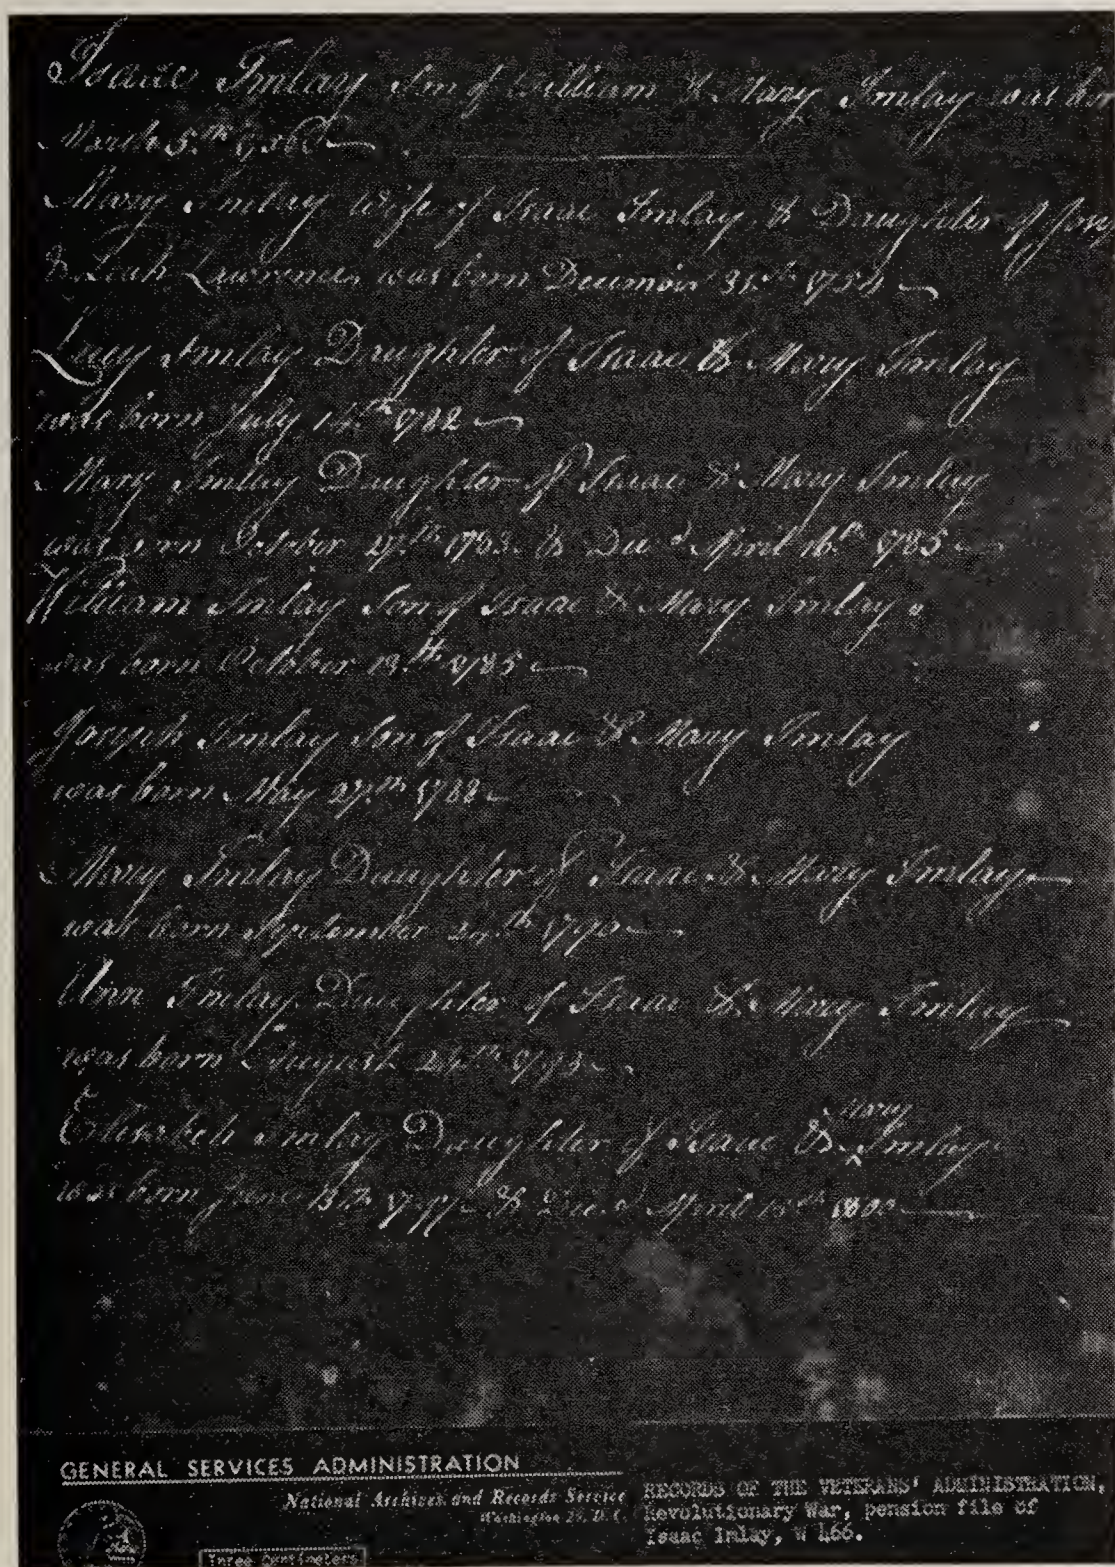 Isaac Imlay Son of William & Mary Imlay was
March 5.th
Mary Imlay Wife of Isaac Imlay & Daughter of
& Leah Lawrence, was born December 31.th 1754
Lucy Imlay Daughter of Isaac & Mary Imlay
was born July 14.th 1782
Mary Imlay Daughter of Isaac & Mary Imlay
was born October 27.th 1783. & Dec.d April 16.th 1785
William Imlay Son of Isaac & Mary Imlay
was born October 19.th 1785
Joseph Imlay Son of Isaac & Mary Imlay
was born May 27.th 1788
Mary Imlay Daughter of Isaac & Mary Imlay
was born September th 1790
Ann Imlay Daughter of Isaac & Mary Imlay
was born August th
Mary
Elizabeth Imlay Daughter of Isaac & Imlay
was born June th & Dec.d April th
GENERAL SERVICES ADMINISTRATION
National Archives and Records Service
Washington 25, D.C.
RECORDS OF THE VETERANS' ADMINISTRATION,
Revolutionary War, pension file of
Isaac Imlay, W 166.
Three Centimeters